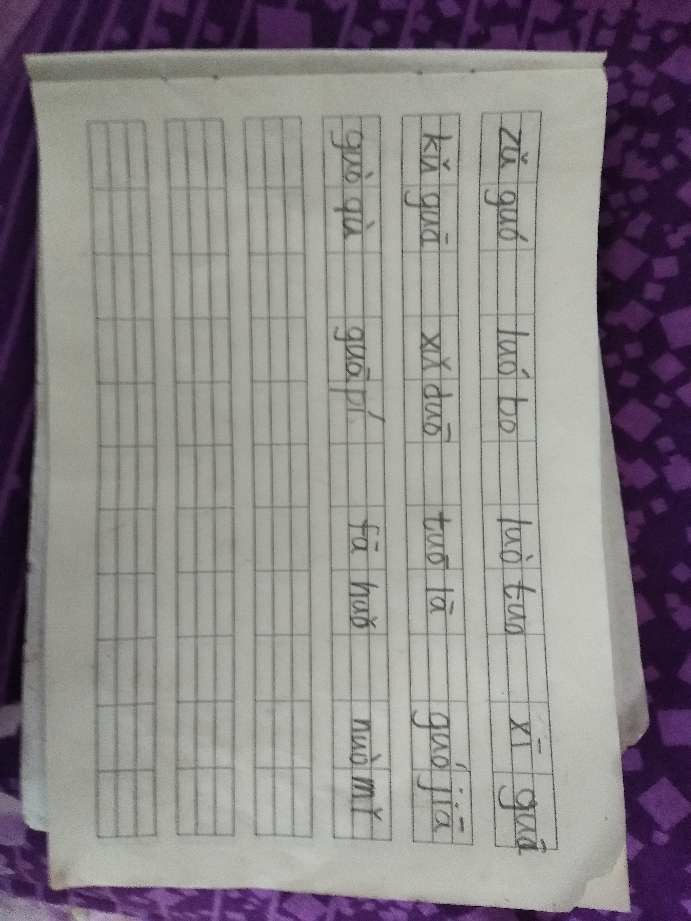 zǔ guó luó bo luò tuo xī guā
kǔ guā xǔ duō tuō lā guó jiā
guò qù guā pí fā huǒ nuò mǐ